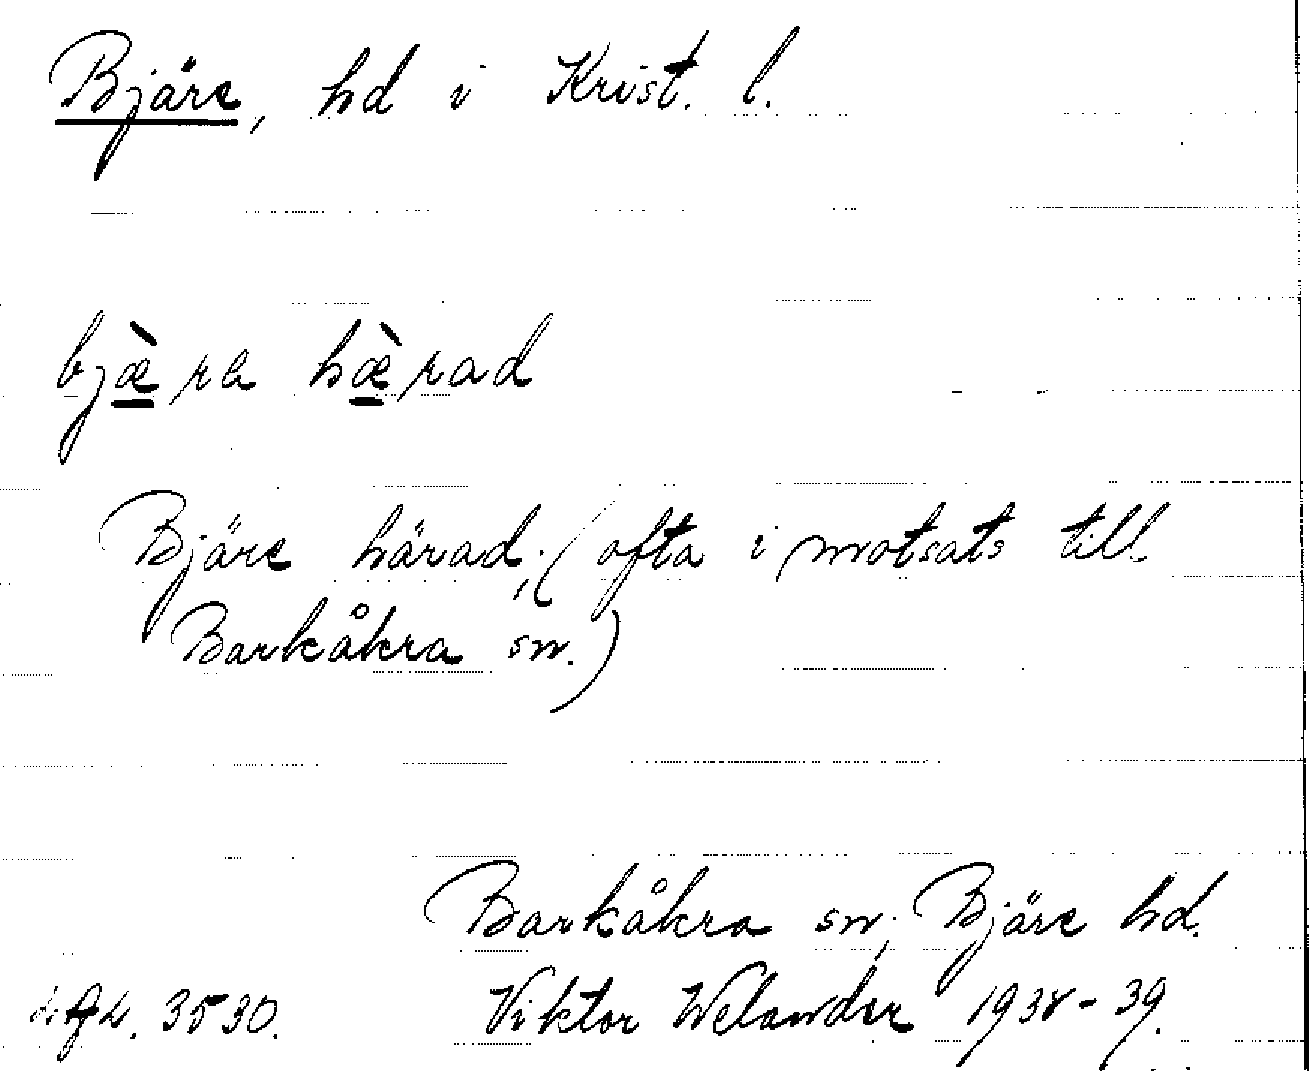 Bjäre, hd i Krist. l.
bjæ̀ra hæ̀rad
Bjäre härad; (ofta i motsats till
Barkåkra sn.)
Barkåkra sn; Bjäre hd.
3530. Viktor Welander 1938-39.